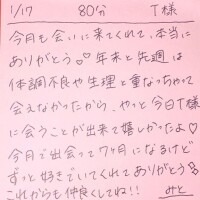 1/17 80分 T様
今月も会いに来てくれて、本当に
ありがとう♡♡ 年末と先週は
体調不良や生理と重なっちゃって
会えなかったから、やっと今日T様
に会うことが出来て嬉しかったよ♡
今月で出会って7ヶ月になるけど
ずっと好きでいてくれてありがとう♡
これからも仲良くしてね!! みと